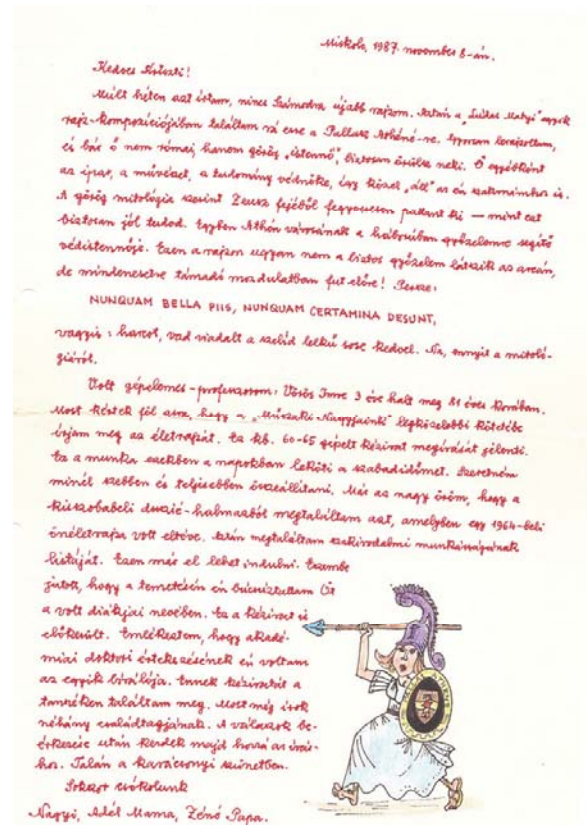 Miskolc, 1987. november 8-án.
Kedves Kriszti!
Múlt héten azt írtam, nincs Számodra újabb rajzom. Aztán a „Ludas Matyi" egyik
rajz-kompozíciójában találtam rá erre a Pallasz Athéné-re. Gyorsan lerajzoltam,
és bár ő nem római, hanem görög „istennő", biztosan örülsz neki. Ő egyébként
az ipar, a művészet, a tudomány védnöke, így közel „áll" az én szakmámhoz is.
A görög mitológia szerint Zeusz fejéből fegyveresen pattant ki — mint ezt
biztosan jól tudod. Egyben Athén városának a háborúban győzelemre segítő
védistennője. Ezen a rajzon ugyan nem a biztos győzelem látszik az arcán,
de mindenesetre támadó mozdulatban fut előre! Persze:
NUNQUAM BELLA PIIS, NUNQUAM CERTAMINA DESUNT,
vagyis: harcot, vad viadalt a szelíd lelkű sose kedvel. Na, ennyit a mitoló-
giáról.
Volt gépelemes-professzorom: Vörös Imre 3 éve halt meg 81 éves korában.
Most kértek föl arra, hogy a „Műszaki Nagyjaink" legközelebbi kötetébe
írjam meg az életrajzát. Ez kb. 60-65 gépelt kézirat megírását jelenti.
Ez a munka ezekben a napokban leköti a szabadidőmet. Szeretném
minél szebben és teljesebben összeállítani. Már az nagy öröm, hogy a
kisszobabeli doszié-halmazból megtaláltam azt, amelyben egy 1964-beli
önéletrajza volt eltéve. Aztán megtaláltam szakirodalmi munkásságának
listáját. Ezen már el lehet indulni. Eszembe
jutott, hogy a temetésén én búcsúztattam Őt
a volt diákjai nevében. Ez a kézirat is
előkerült. Emlékeztem, hogy akadé-
miai doktori értekezésének én voltam
az egyik bírálója. Ennek kéziratát a
tanszéken találtam meg. Most még írok
néhány családtagjának. A válaszok be-
érkezése után kezdek majd hozzá az írás-
hoz. Talán a karácsonyi szünetben.
Sokszor csókolunk
Nagyi, Adél Mama, Zénó Papa.